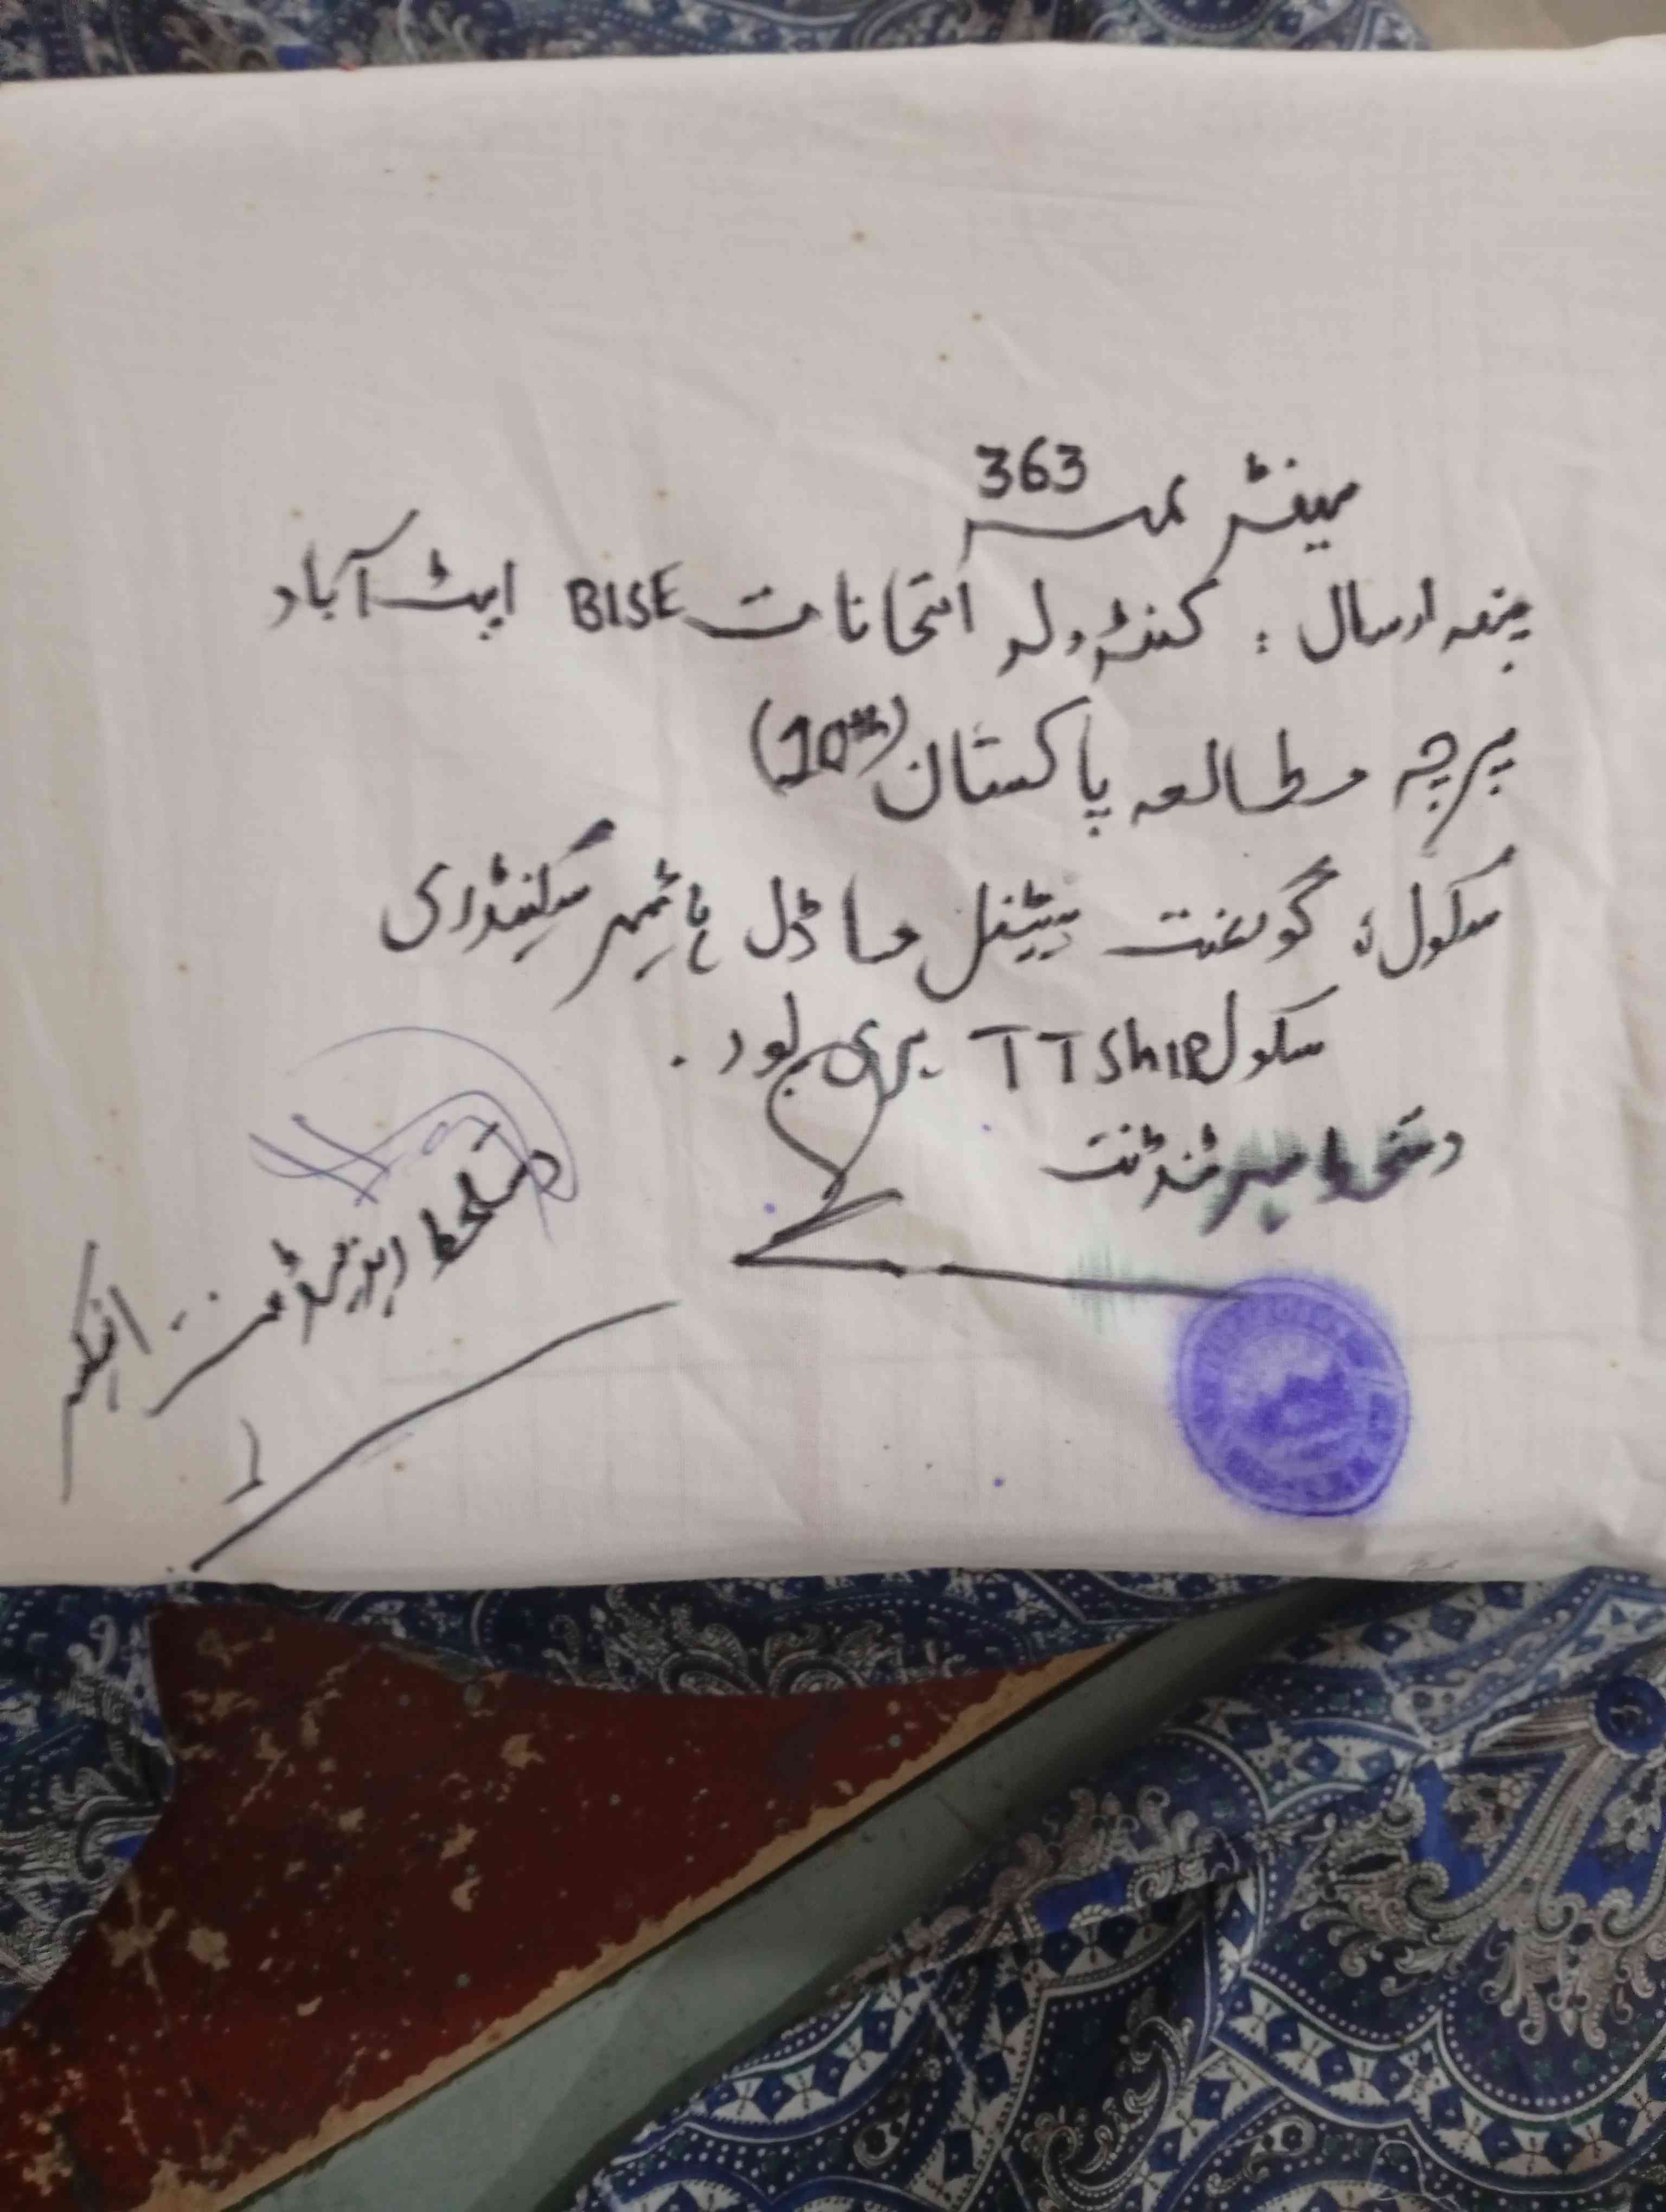 سینٹر نمبر 363
پتہ ارسال : کنٹرولر امتحانات BISE ایبٹ آباد
پرچہ مطالعہ پاکستان (10th)
سکول : گورنمنٹ سینٹنل ماڈل ہائیر سکینڈری
سکول TTShip ہری پور .
دستخط سپرنٹنڈنٹ
دستخط ریزیڈنٹ انسپکٹر